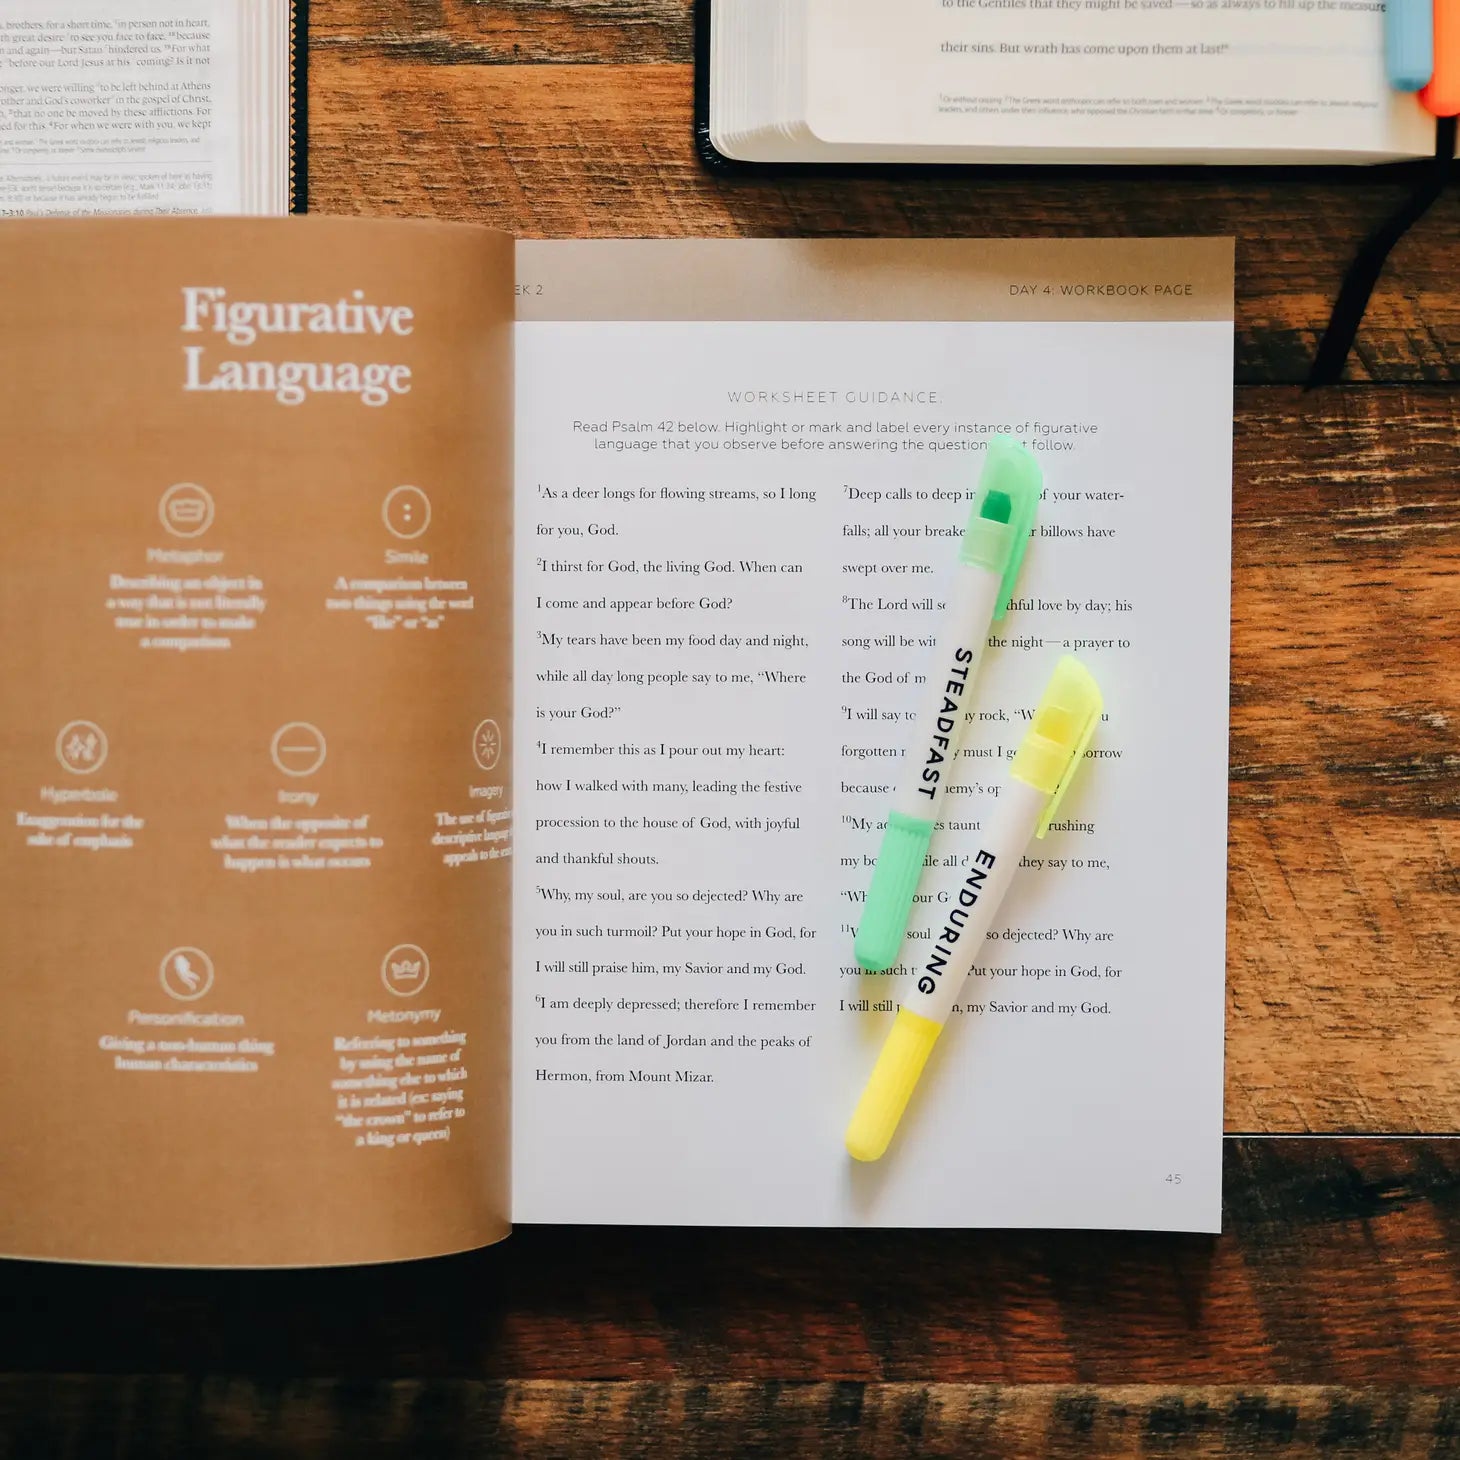 brothers, for a short time, in person not in heart,
great desire to see you face to face. 18because
and again—but Satan hindered us. 19For what
before our Lord Jesus at his coming? Is it not
longer, we were willing to be left behind at Athens
brother and God's coworker in the gospel of Christ,
that no one be moved by these afflictions. For
for this. 4For when we were with you, we kept
7–3:10 Paul's Defense of the Missionaries during Their Absence.
to the Gentiles that they might be saved—so as always to fill up the measure
their sins. But wrath has come upon them at last!
Figurative
Language
Metaphor
Describing an object in
a way that is not literally
true in order to make
a comparison
Simile
A comparison between
two things using the word
"like" or "as"
Hyperbole
Exaggeration for the
sake of emphasis
Irony
When the opposite of
what the reader expects to
happen is what occurs
Imagery
The use of
descriptive
appeals to the
Personification
Giving a non-human thing
human characteristics
Metonymy
Referring to something
by using the name of
something else to which
it is related (ex: saying
"the crown" to refer to
a king or queen)
EK 2
DAY 4: WORKBOOK PAGE
WORKSHEET GUIDANCE:
Read Psalm 42 below. Highlight or mark and label every instance of figurative
language that you observe before answering the question t follow.
1As a deer longs for flowing streams, so I long
for you, God.
2I thirst for God, the living God. When can
I come and appear before God?
3My tears have been my food day and night,
while all day long people say to me, “Where
is your God?”
4I remember this as I pour out my heart:
how I walked with many, leading the festive
procession to the house of God, with joyful
and thankful shouts.
5Why, my soul, are you so dejected? Why are
you in such turmoil? Put your hope in God, for
I will still praise him, my Savior and my God.
6I am deeply depressed; therefore I remember
you from the land of Jordan and the peaks of
Hermon, from Mount Mizar.
7Deep calls to deep in of your water-
falls; all your breake r billows have
swept over me.
8The Lord will se thful love by day; his
song will be wit the night—a prayer to
the God of m
9I will say to y rock, “W u
forgotten y must I go orrow
because emy's op
10My a es taunt rushing
my bo ile all d they say to me,
“Wh our G
11W soul so dejected? Why are
you in such t Put your hope in God, for
I will still m, my Savior and my God.
STEADFAST
ENDURING
45